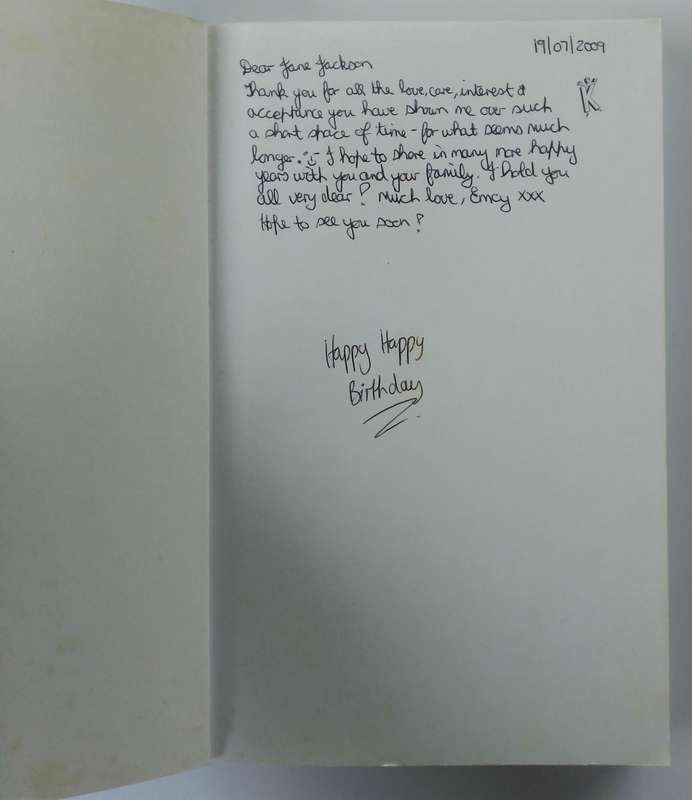 19/07/2009
Dear Jane Jackson
Thank you for all the love, care, interest &
acceptance you have shown me over such
a short space of time - for what seems much
longer. :) I hope to share in many more happy
years with you and your family. I hold you
all very dear! Much love, Emcy xxx
Hope to see you soon!
K
Happy Happy
Birthday